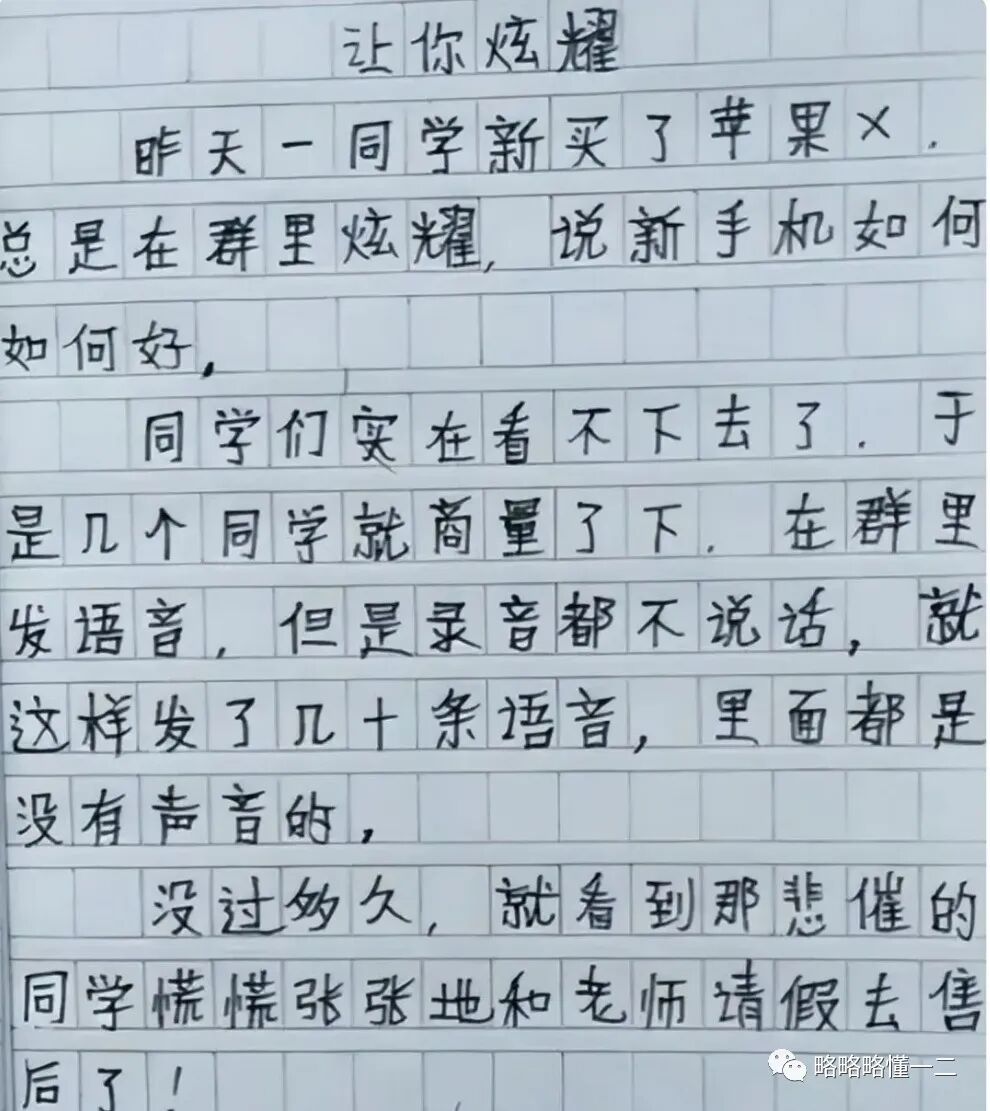 让你炫耀
昨天一同学新买了苹果X.
总是在群里炫耀,说新手机如何
如何好,
同学们实在看不下去了.于
是几个同学就商量了下.在群里
发语音,但是录音都不说话,就
这样发了几十条语音,里面都是
没有声音的,
没过多久,就看到那悲催的
同学慌慌张张地和老师请假去售
后了!
略略略懂一二